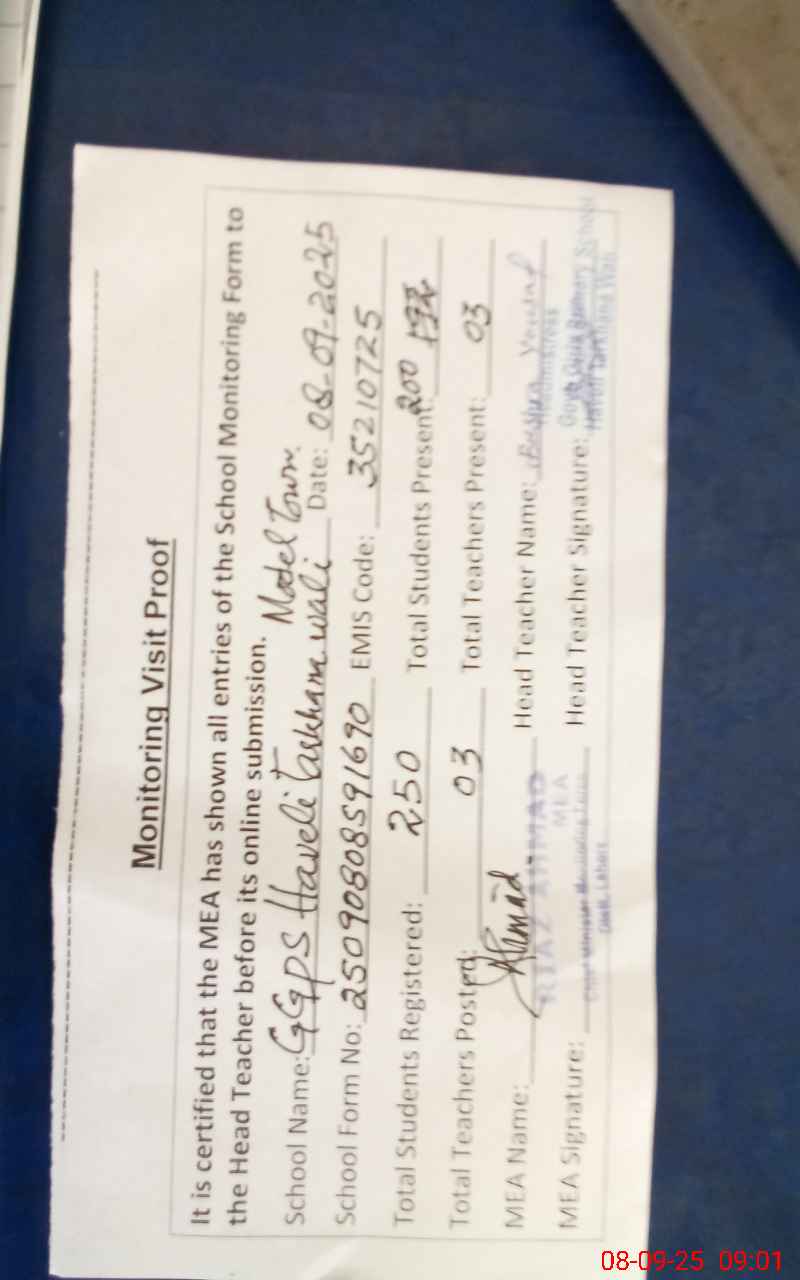 Monitoring Visit Proof
It is certified that the MEA has shown all entries of the School Monitoring Form to
the Head Teacher before its online submission.
Model Town.
School Name: GGPS Haveli Tarkham wali Date: 08-09-2025
School Form No: 25090808591690 EMIS Code: 35210725
Total Students Registered: 250 Total Students Present: 200
Total Teachers Posted: 03 Total Teachers Present: 03
MEA Name: Ahmad Head Teacher Name: Bushra Yousaf
RIAZ AHMAD
MEA
MEA Signature: Head Teacher Signature:
Chief Minister Monitoring Force
Lahore
Govt. Girls Primary School
08-09-25 09:01